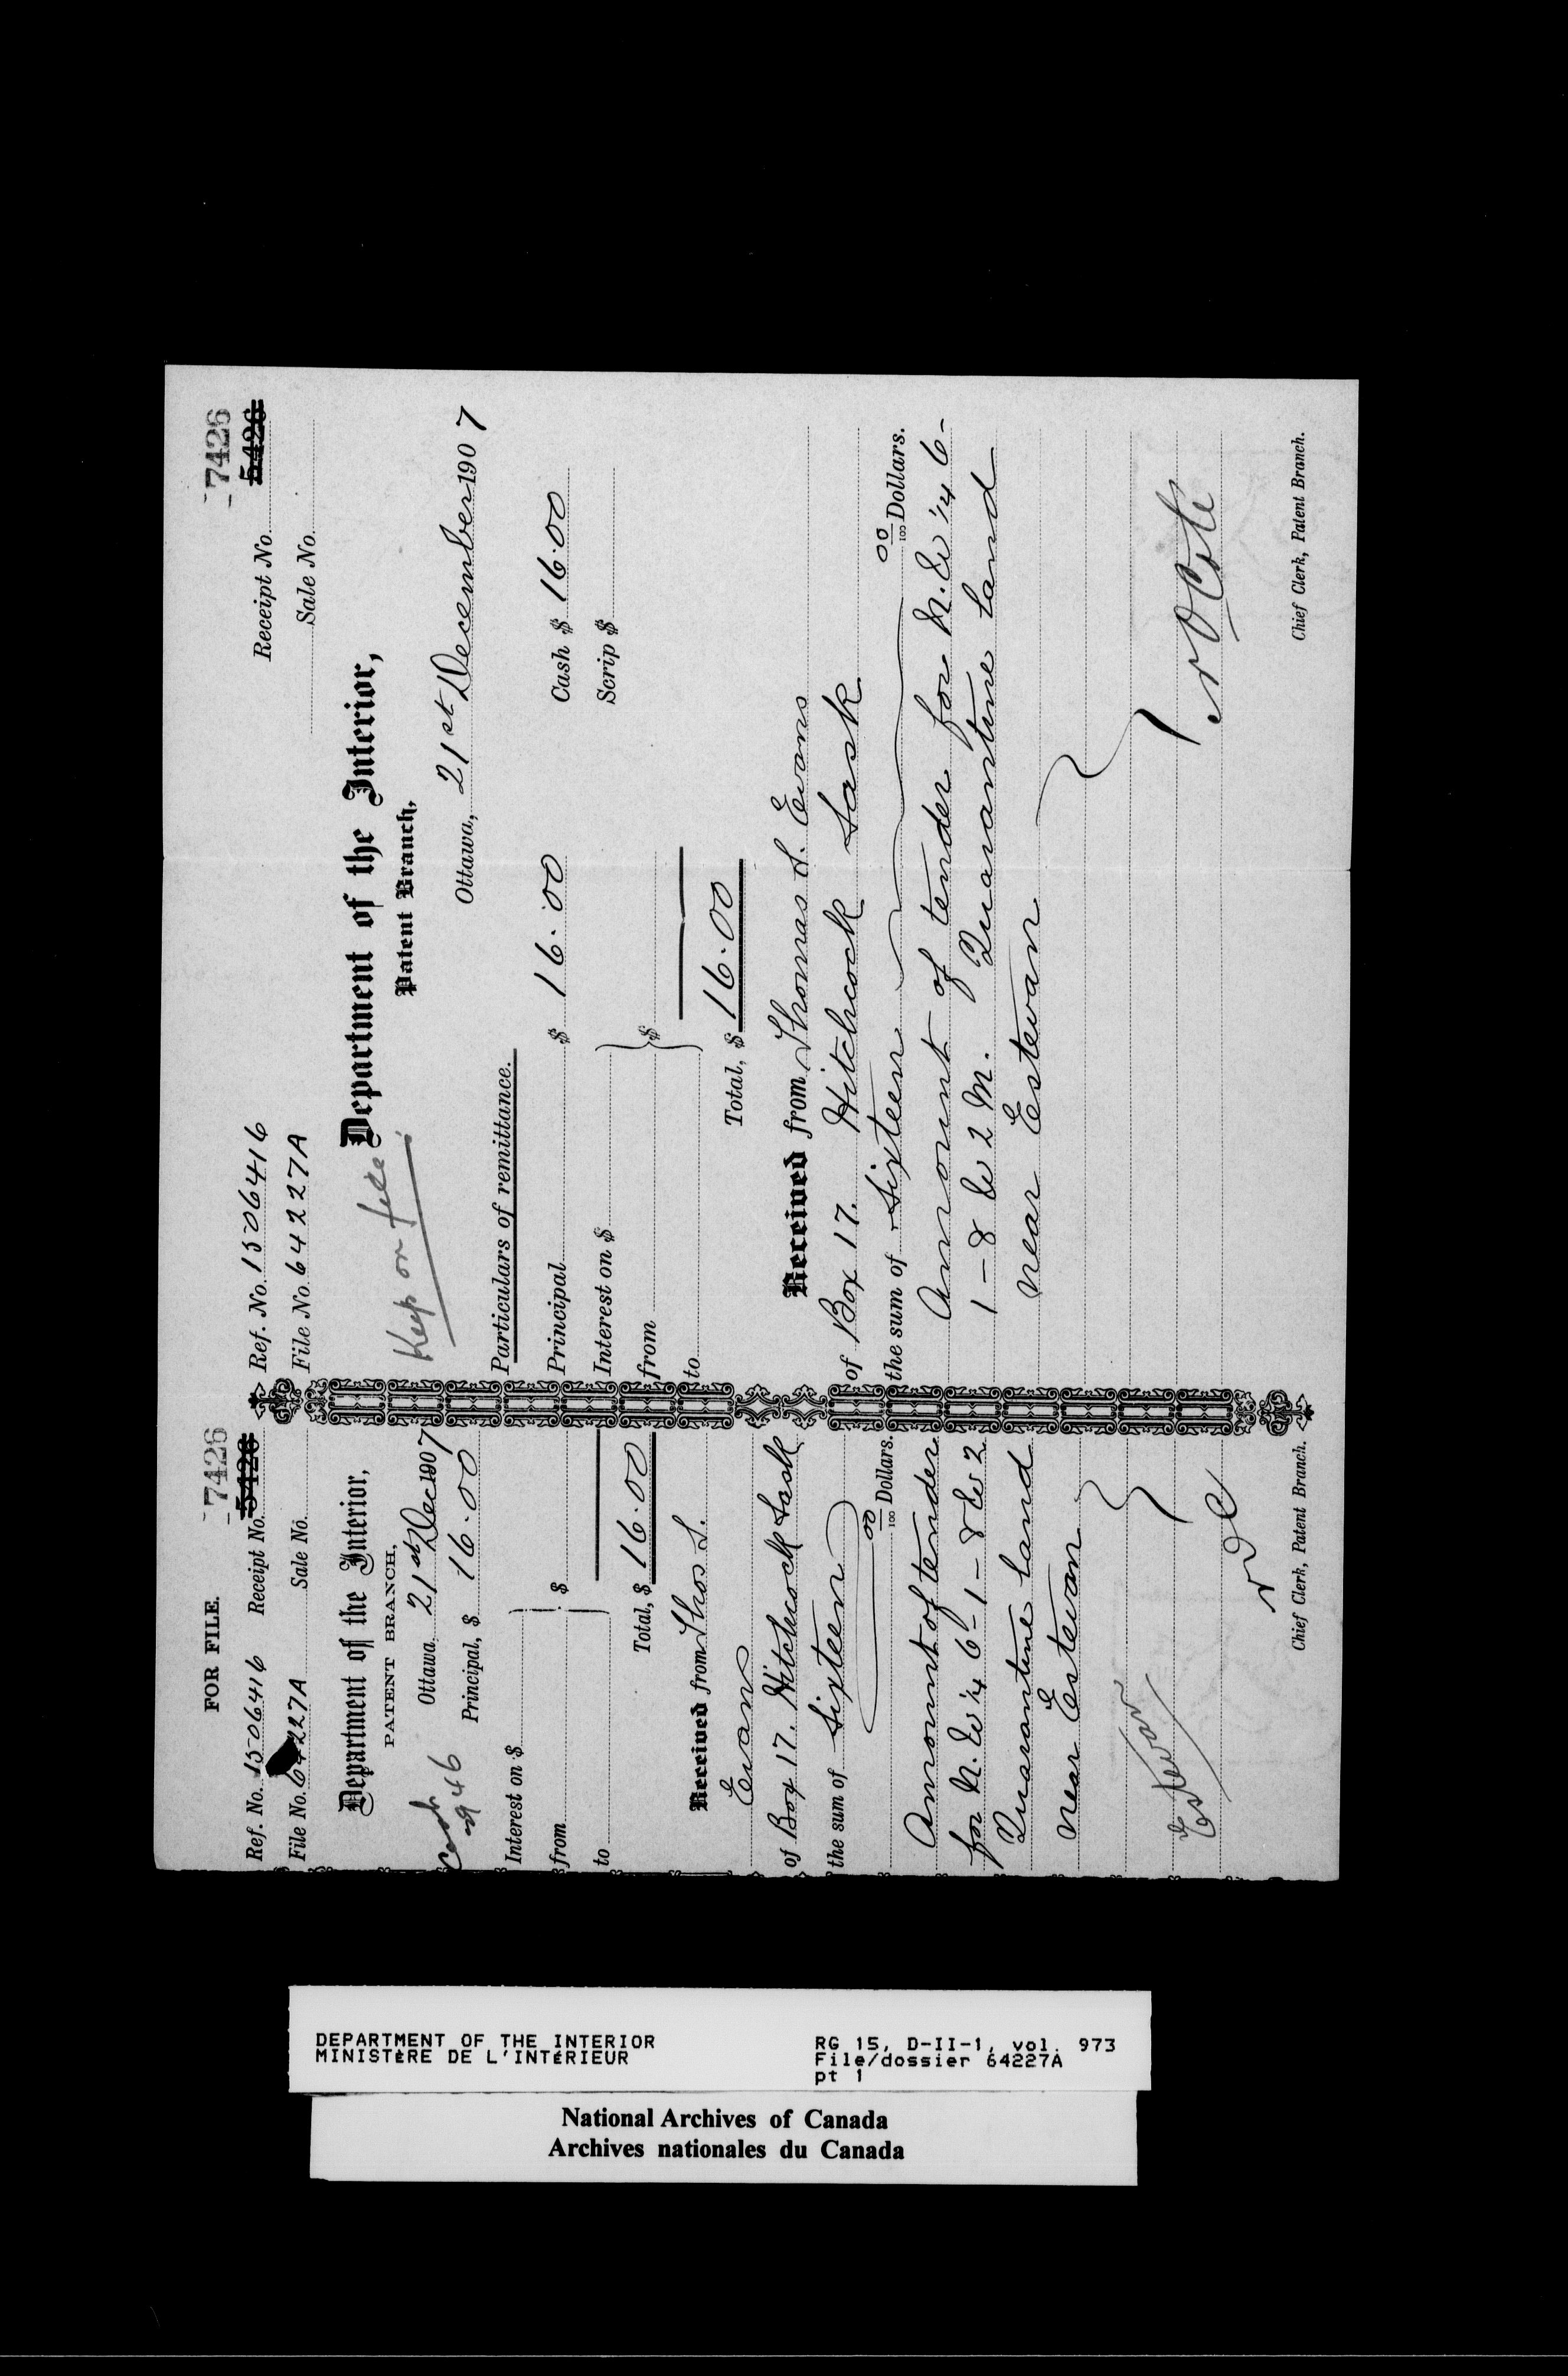 FOR FILE.
7426
Ref. No. 1506416 Receipt No. 5426
File No. 64227A Sale No.
Department of the Interior,
PATENT BRANCH,
Ottawa 21st Dec 1907
Cash
Principal, $ 16.00
Interest on $
from $
to
Total, $ 16.00
Received from Thos S.
Evans
of Box 17. Hitchcock Sask
the sum of Sixteen
00/100 Dollars.
Amount of tender
for N.W 1/4 6-1-8 W 2
Quarantine Land
near Estevan
Estevan
Chief Clerk, Patent Branch.
7426
Ref. No. 1506416 Receipt No. 5426
File No. 64227A Sale No.
Department of the Interior,
Keep on file
Patent Branch,
Ottawa, 21st December 1907
Particulars of remittance.
Principal $ 16.00 Cash $ 16.00
Interest on $ Scrip $
from $
to
Total, $ 16.00
Received from Thomas S. Evans
of Box 17. Hitchcock Sask
the sum of Sixteen 00/100 Dollars.
Amount of tender for N.W 1/4 6-
1-8 W 2 M. Quarantine Land
near Estevan
N O Coté
Chief Clerk, Patent Branch.
DEPARTMENT OF THE INTERIOR
MINISTÈRE DE L'INTÉRIEUR
RG 15, D-II-1, vol. 973
File/dossier 64227A
pt 1
National Archives of Canada
Archives nationales du Canada